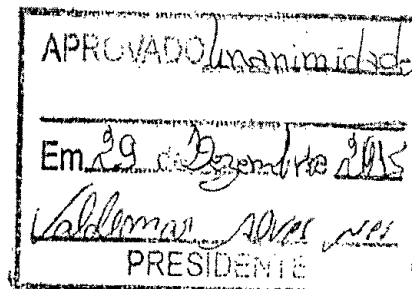 APROVADO unanimidade
Em 29 de Dezembro 2015
Valdemar Alves
PRESIDENTE